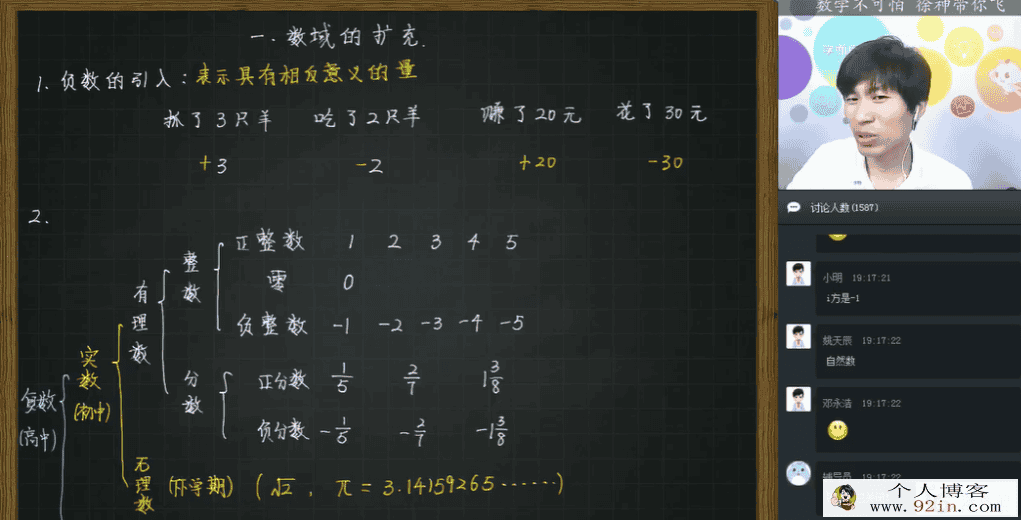 一.数域的扩充.
1.负数的引入:表示具有相反意义的量
抓了3只羊 吃了2只羊 赚了20元 花了30元
+3 -2 +20 -30
2.
正整数 1 2 3 4 5
整数
零 0
有理数
负整数 -1 -2 -3 -4 -5
实数(初中)
正分数 1/5 2/7 1 3/8
分数
复数(高中)
负分数 -1/5 -2/7 -1 3/8
无理数 (下学期) (√2, π=3.14159265……)
数学不可怕 徐神带你飞
讨论人数(1587)
小明 19:17:21
i方是-1
姚天辰 19:17:22
自然数
邓永浩 19:17:22
辅导员 19:17:22
个人博客
www.92in.com